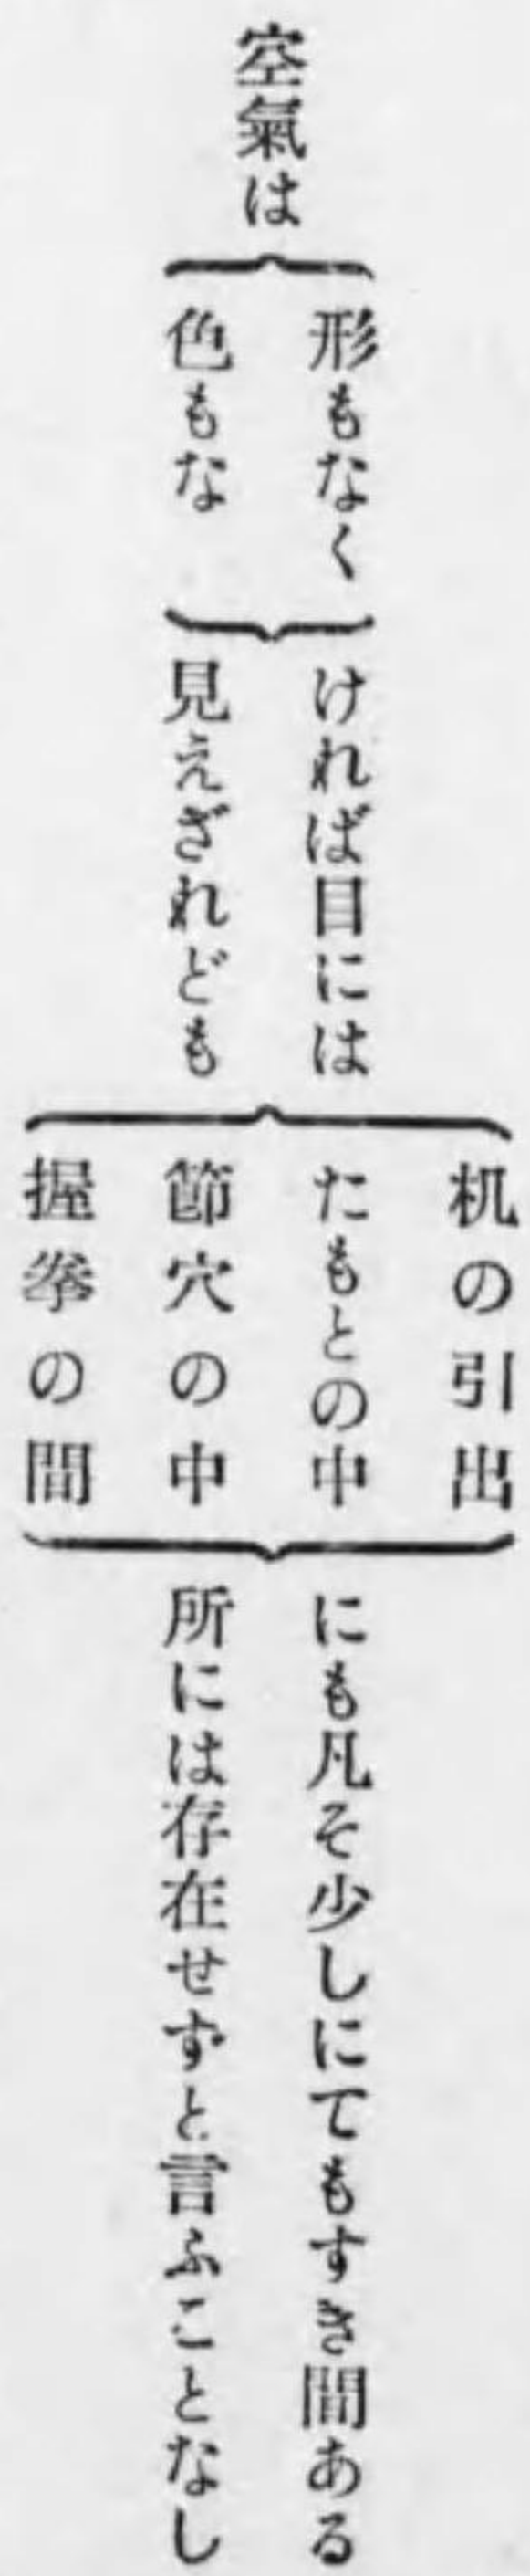 空氣は
形もなく
色もな
ければ目には
見えざれども
机の引出
たもとの中
節穴の中
握拳の間
にも凡そ少しにてもすき間ある
所には存在せずと言ふことなし